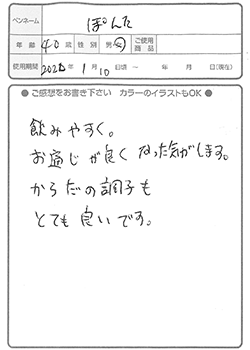 ペンネーム ぽんた
年齢 40歳 性別 男・女 ご使用商品
使用期間 2022年1月10日頃 ~ 年 月 日(現在)
● ご感想をお書き下さい カラーのイラストもOK ●
飲みやすく。
お通じが良くなった気がします。
からだの調子も
とても良いです。